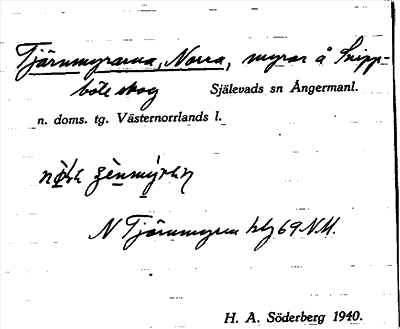 Tjärnmyrarna, Norra, myrar å Snipp-
böle skog Själevads sn Ångermanl.
n. doms. tg. Västernorrlands l.
N Tjärnmyren 69 N.M.
H. A. Söderberg 1940.